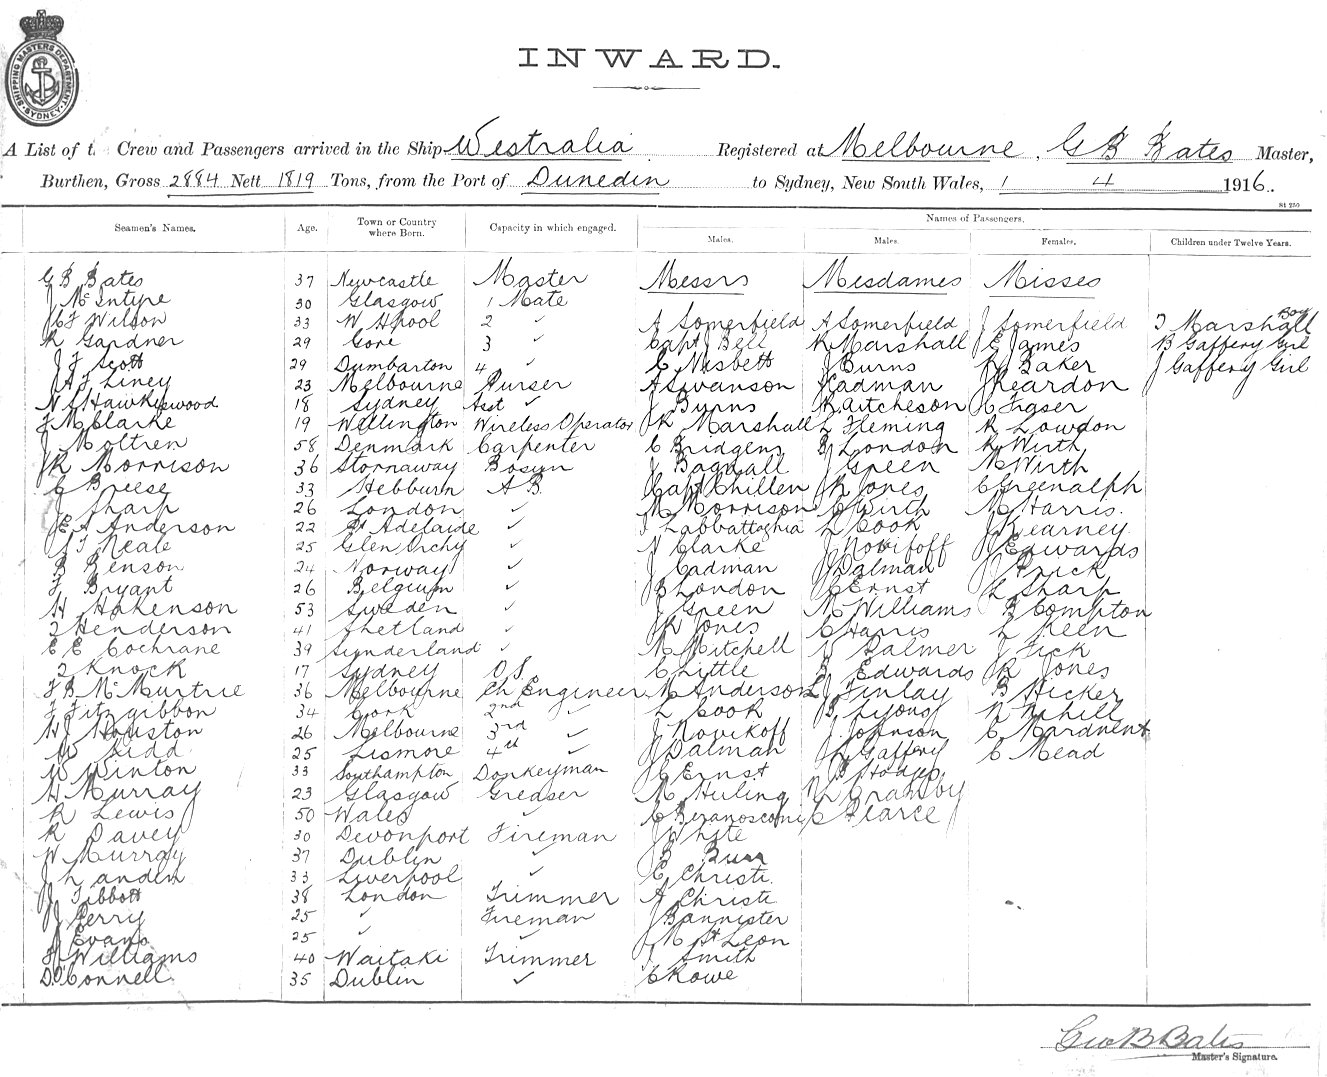 SHIPPING MASTERS DEPARTMENT SYDNEY
INWARD.
A List of t Crew and Passengers arrived in the Ship Westralia Registered at Melbourne, G B Bates Master,
Burthen, Gross 2884 Nett 1819 Tons, from the Port of Dunedin to Sydney, New South Wales, 1 4 1916.
St 250
Seamen's Names. Age. Town or Country where Born. Capacity in which engaged. Names of Passengers.
Males. Males. Females. Children under Twelve Years.
G B Bates 37 Newcastle Master Messrs Mesdames Misses
J McIntyre 30 Glasgow 1 Mate
Wilson 33 W Hpool 2 ✓ A Somerfield A Somerfield J Somerfield J Marshall Boy
R Gardner 29 Gore 3 ✓ Capt J Bell R Marshall E James B Gaffery Girl
J F Scott 29 Dumbarton 4 ✓ C Nesbett J Burns Baker J Gaffery Girl
Liney 23 Melbourne Purser A Swanson Cadman J Reardon
Hawkeswood 18 Sydney Asst ✓ J Burns R Aitcheson C Fraser
F M Clarke 19 Wellington Wireless Operator J R Marshall L Fleming R Lowdon
J Moltren 58 Denmark Carpenter C Bridgens B London R Wirth
J R Morrison 36 Stornaway Bosun J Bagnall J Green M Wirth
C Breese 33 Hebburn A B Capt Chillen J R Jones C Greenalph
J Sharp 26 London ✓ M Morrison C Wirth M Harris.
J E A Anderson 22 Pt Adelaide ✓ J Labbattaghia L Cook J Kearney
J Neale 25 Glen Orchy ✓ N Clarke J Novikoff J Edwards
B Benson 24 Norway ✓ J Cadman J Dalman J Prick
F Bryant 26 Belgium ✓ B London C Ernst L Sharp
H Hakenson 53 Sweden ✓ J Green M Williams B Compton
J Henderson 41 Shetland ✓ J R Jones C Harris L Keen
E E Cochrane 39 Sunderland ✓ M Mitchell V Palmer J Fick
J Knock 17 Sydney O.S. C Little B Edwards R Jones
F B McMurtrie 36 Melbourne Ch Engineer M Anderson J Finlay B Hicker
F Fitzgibbon 34 Cork 2nd ✓ L Cook B Lyons N Nihill
H J Houston 26 Melbourne 3rd ✓ J Novikoff J Johnson C Mardnent
W Kidd 25 Lismore 4th ✓ J Dalman L Gaffery C Mead
W Winton 33 Southampton Donkeyman C Ernst B Hodges
H Murray 23 Glasgow Greaser M Huling N Cransby
R Lewis 50 Wales ✓ C Beranosconi C Pearce
R Davey 30 Devonport Fireman J White
W Murray 37 Dublin ✓ B Burr
J Landen 33 Liverpool ✓ C Christi.
J Tibbott 38 London Trimmer A Christi
J Perry 25 ✓ Fireman J Bannister
J Evans 25 ✓ ✓ J McLeon
F Williams 40 Waitaki Trimmer J Smith
D. O'Connell 35 Dublin ✓ C Rowe
Geo B Bates
Master's Signature.